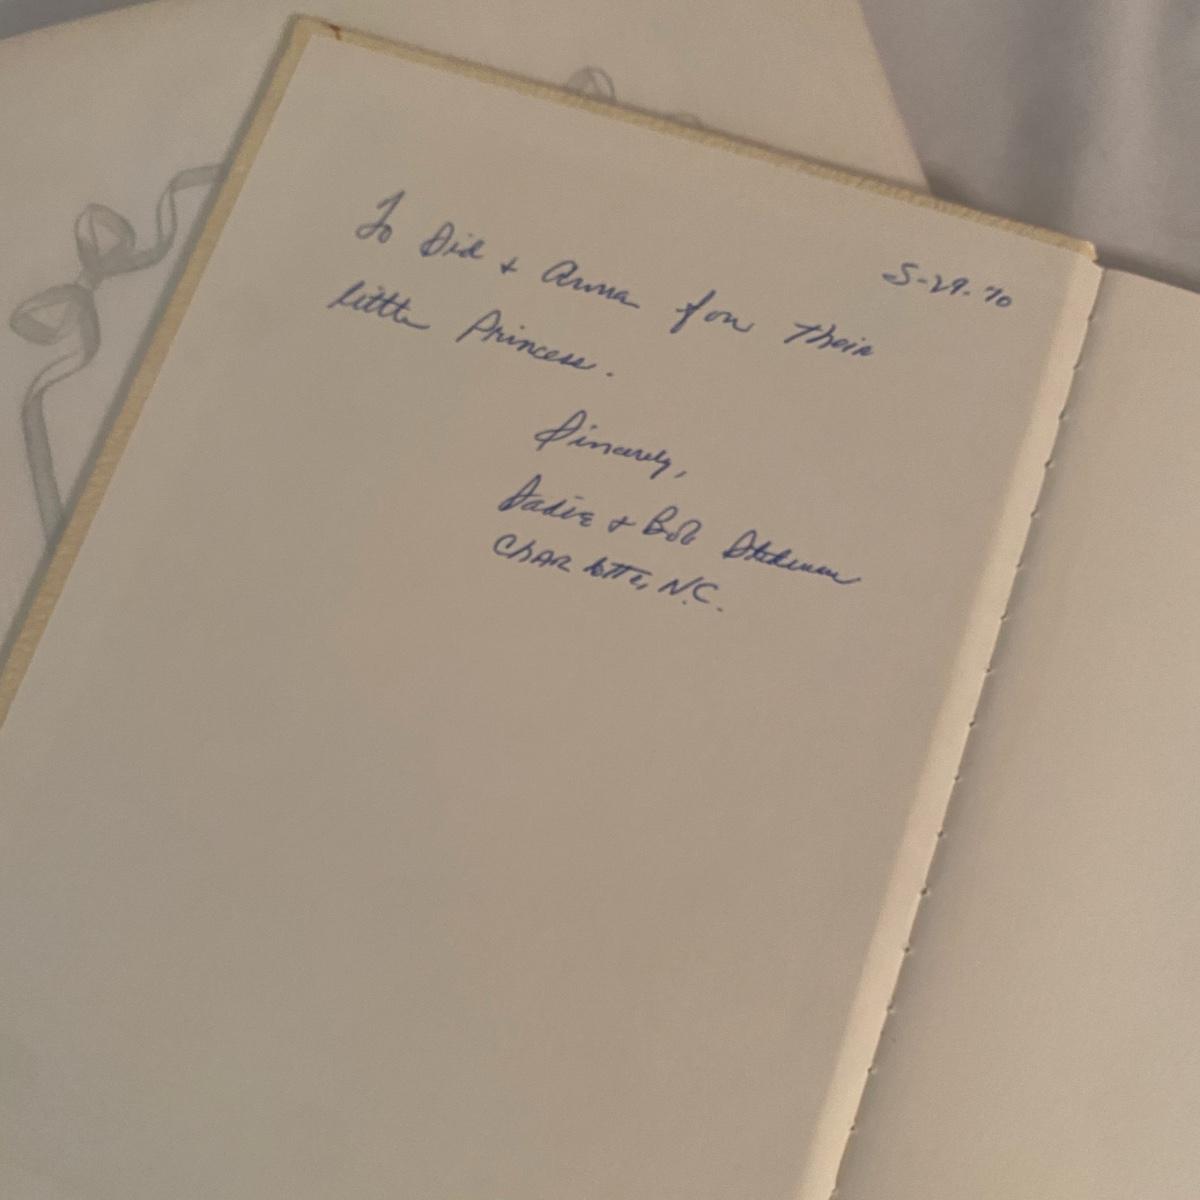 5-29-70
To Sid + Anna for their
little Princess.
Sincerely,
Sadie + Bob
Charlotte, N.C.